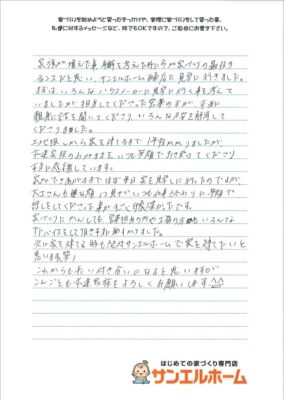 家づくりを始めようと思ったきっかけや、実際に家づくりをして思った事、
私達に対するメッセージなど、何でもOKですので、ご自由にお書き下さい。
家族が増えた事、年齢を考えた時に今が家づくりの最後の
チャンスだと思い、サンエルホーム 店に見学に行きました。
最初はいろんなハウスメーカーに見学に行く事を考えて
いましたが、担当してくださった営業の方が、本当に
親身に話を聞いてくださり いろんな不安を解消して
くださりました。
土地探しから家を建てるまで1年前 かかりましたが、
家族のわがままを いつも笑顔でお き下 てくださり
本当に感謝しています。
家ができあがるまでほぼ毎日家を見学しに行ったのですが、
大工さんも嫌な顔1つ見せずいつもあたたかりに笑顔で
話しをしてくださった事がすごく印象深かったです。
家づくりに かんしても、営業担当の方や工事の方 もいろんな
アドバイスをして頂き本当に助かりました。
次に家を建てる時も絶対サンエルホームで家を建てたいと
思います(笑)
これからも長い付き合いになると思いますが
こんごとも 家族をよろしくお願いします^^
はじめての家づくり専門店
サンエルホーム